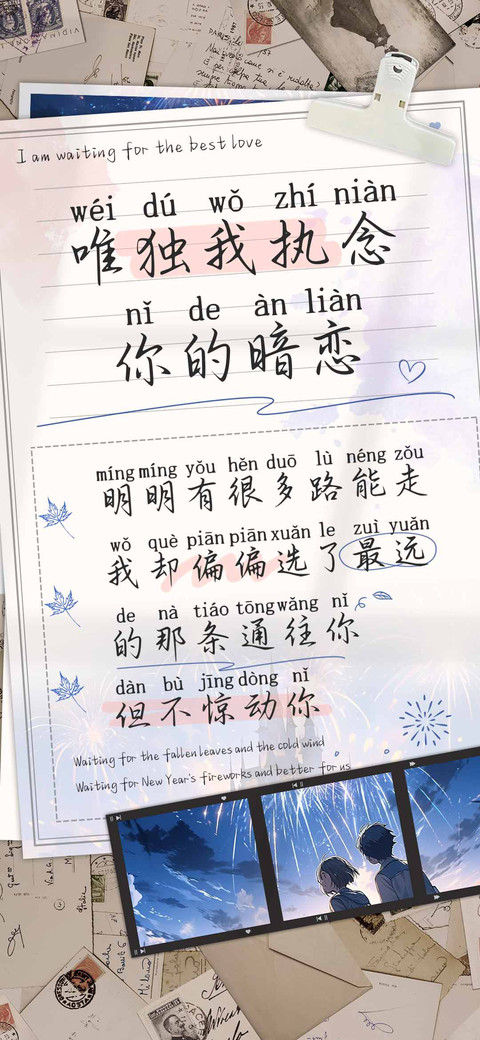 I am waiting for the best love
wéi dú wǒ zhí niàn
唯独我执念
nǐ de àn liàn
你的暗恋
míng míng yǒu hěn duō lù néng zǒu
明明有很多路能走
wǒ què piān piān xuǎn le zuì yuǎn
我却偏偏选了最远
de nà tiáo tōng wǎng nǐ
的那条通往你
dàn bù jīng dòng nǐ
但不惊动你
Waiting for the fallen leaves and the cold wind
Waiting for New Year's fireworks and better for us